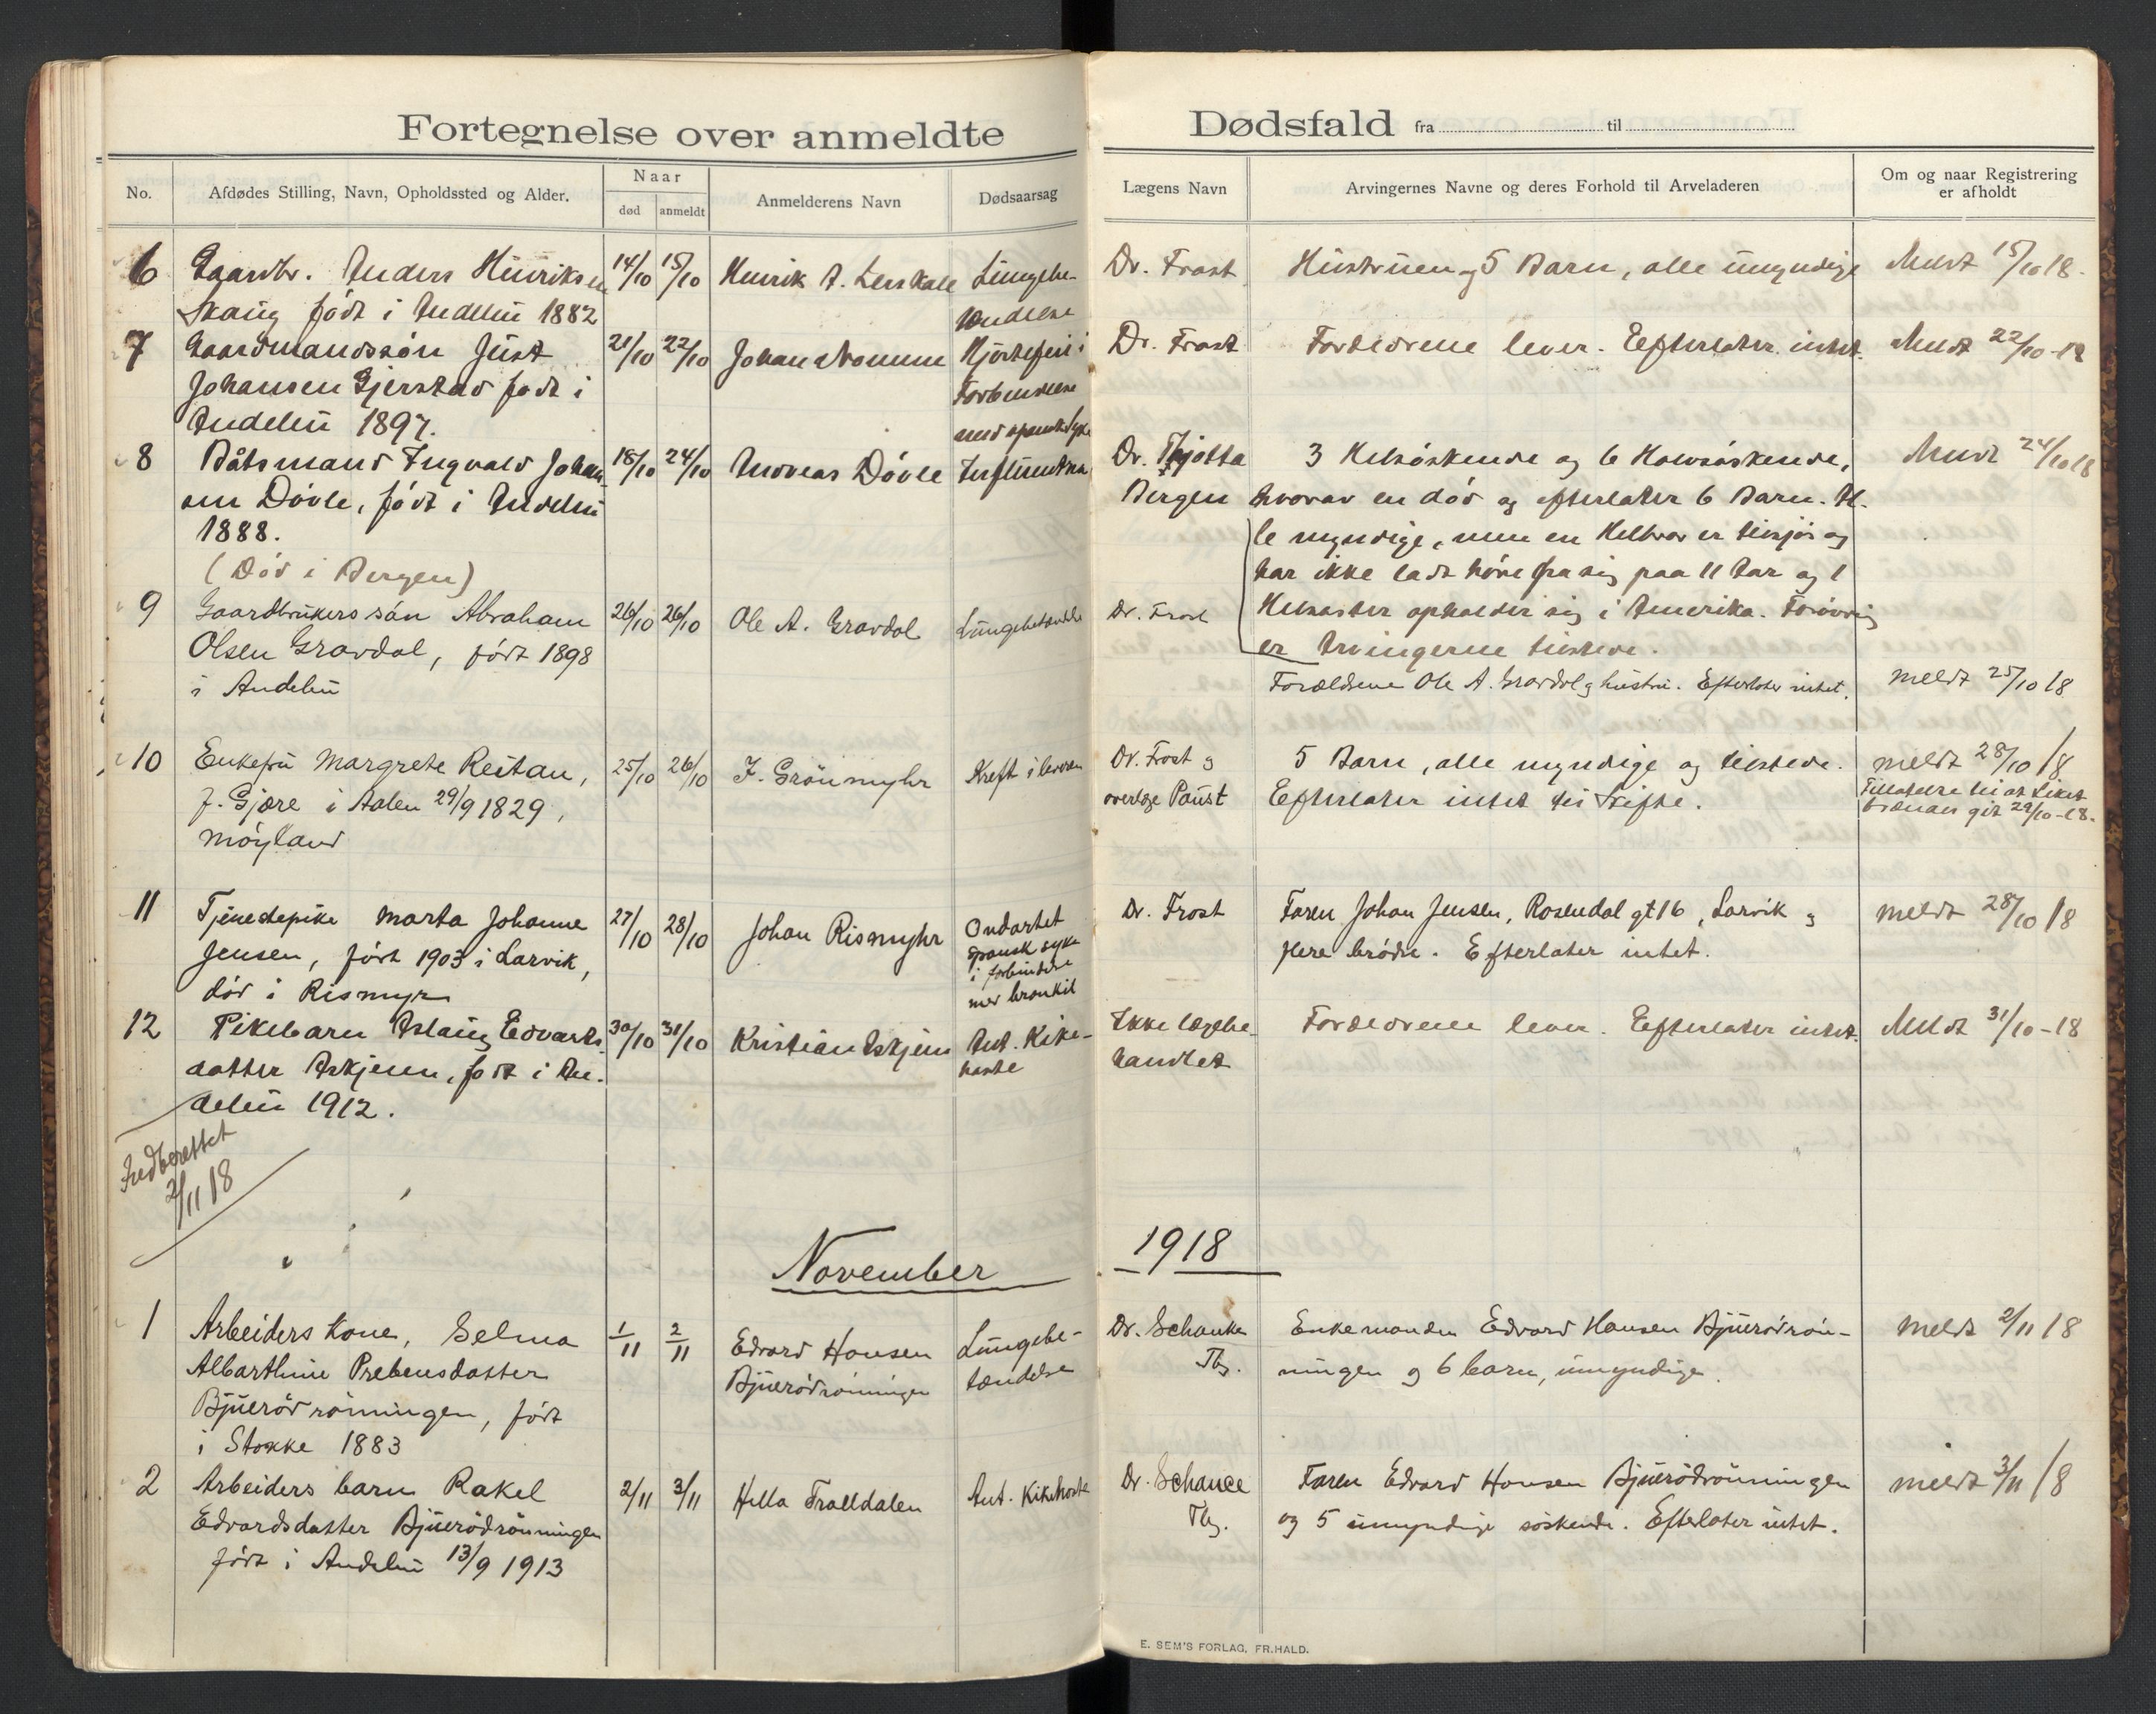 Fortegnelse over anmeldte
Dødsfald fra til
No.
Afdødes Stilling, Navn, Opholdssted og Alder.
Naar
død
anmeldt
Anmelderens Navn
Dødsaarsag
Lægens Navn
Arvingernes Navne og deres Forhold til Arveladeren
Om og naar Registrering
er afholdt
6 Gaardbr. Anders Hinriksen 14/10 15/10 Henrik A. Lungebe- Dr. Frost Hustruen og 5 Barn, alle umyndige Meldt 15/10 18.
Skaug født i Andebu 1882 tændelse
7 Gaardmandssøn Just 21/10 22/10 Johan Hjertefeil i Dr. Frost Forældrene lever. Efterlater intet. Meldt 22/10-18
Johansen Gjerstad født i Forbindelse
Andebu 1897. med spansk syke
8 Båtsmand Ingvald Johan- 18/10 24/10 Andreas Døvle Influentsa Dr. Thjøtta 3 Helsøskende og 6 Halvsøskende, Meldt 24/10 18
sen Døvle, født i Andebu Bergen hvorav en død og efterlater 6 Barn. Al-
1888. le myndige, men en Helbror er tilsjøs og
(Død i Bergen) har ikke ladt høre fra sig paa 11 Aar og 1
9 Gaardbrukers søn Abraham 26/10 26/10 Ole A. Gravdal Lungebetændelse Dr. Frost Helsøster opholder sig i Amerika. Forøvrig
Olsen Gravdal, født 1898 er Arvingerne tilstede.
i Andebu Forældrene Ole A. Gravdal og hustru. Efterlater intet. meldt 25/10 18
10 Enkefru Margrete Reitan, 25/10 26/10 J. Grønmyhr Kreft i leveren Dr. Frost og 5 Barn, alle myndige og tilstede. meldt 28/10 18
f. Gjære i Aalen 29/9 1829, overlæge Paust Efterlater intet til Skifte. Tillatelse til at Liket
Møyland brændes git 29/10-18.
11 Tjenestepike Marta Johanne 27/10 28/10 Johan Rismyhr Ondartet Dr. Frost Faren Johan Jensen, Rosendal gt 16, Larvik og meldt 28/10 18
Jensen, født 1903 i Larvik, spansk syke flere brødre. Efterlater intet.
død i Rismyr i forbindelse
med bronkit
12 Pikebarn Aslaug Edvards- 30/10 31/10 Kristian Askjem Ant. Kik- Ikke lægebe- Forældrene lever. Efterlater intet. Meldt 31/10-18
datter Askjem, født i An- hoste handlet
debu 1912.
Indberettet
2/11 18
November 1918
1 Arbeiders kone, Selma 1/11 2/11 Edvard Hansen Lungebe- Dr. Schanke Enkemanden Edvard Hansen Bjuerødrøn- Meldt 2/11 18
Albarthine Prebensdatter Bjuerødrønningen tændelse Tbg. ningen og 6 barn, umyndige.
Bjuerødrønningen, født
i Stokke 1883
2 Arbeiders barn Rakel 2/11 3/11 Hella Tralldalen Ant. Kikhoste Dr. Schance Faren Edvard Hansen Bjuerødrønningen meldt 3/11 18
Edvardsdatter Bjuerødrønningen Tbg. og 5 umyndige søskende. Efterlater intet.
født i Andebu 13/9 1913
E. SEM'S FORLAG, FR.HALD.